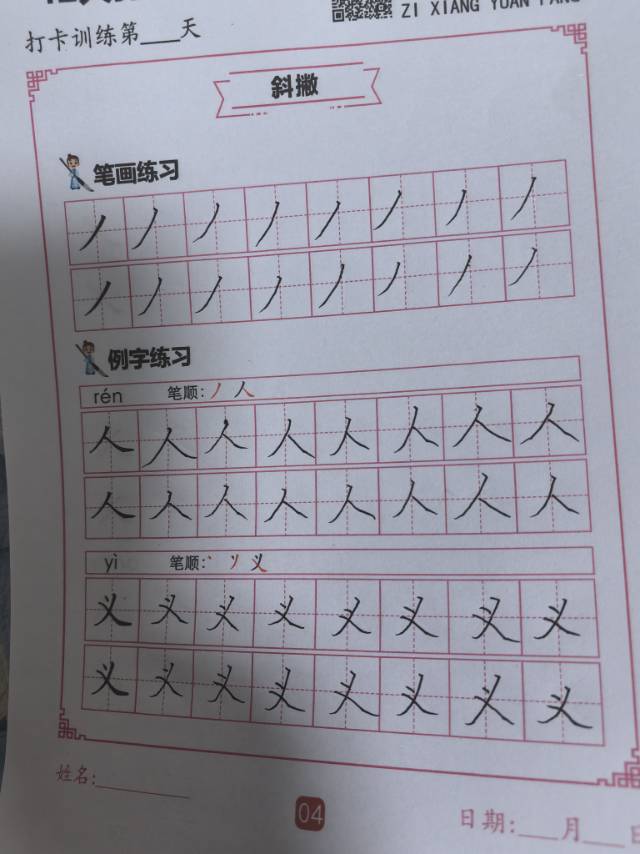 ZI XIANG YUAN FANG
打卡训练第___天
斜撇
笔画练习
丿丿丿丿丿丿丿丿
丿丿丿丿丿丿丿丿
例字练习
rén 笔顺:丿人
人人人人人人人人
人人人人人人人人
yì 笔顺:丶丷义
义义义义义义义义
义义义义义义义义
姓名:
04
日期:___月___日